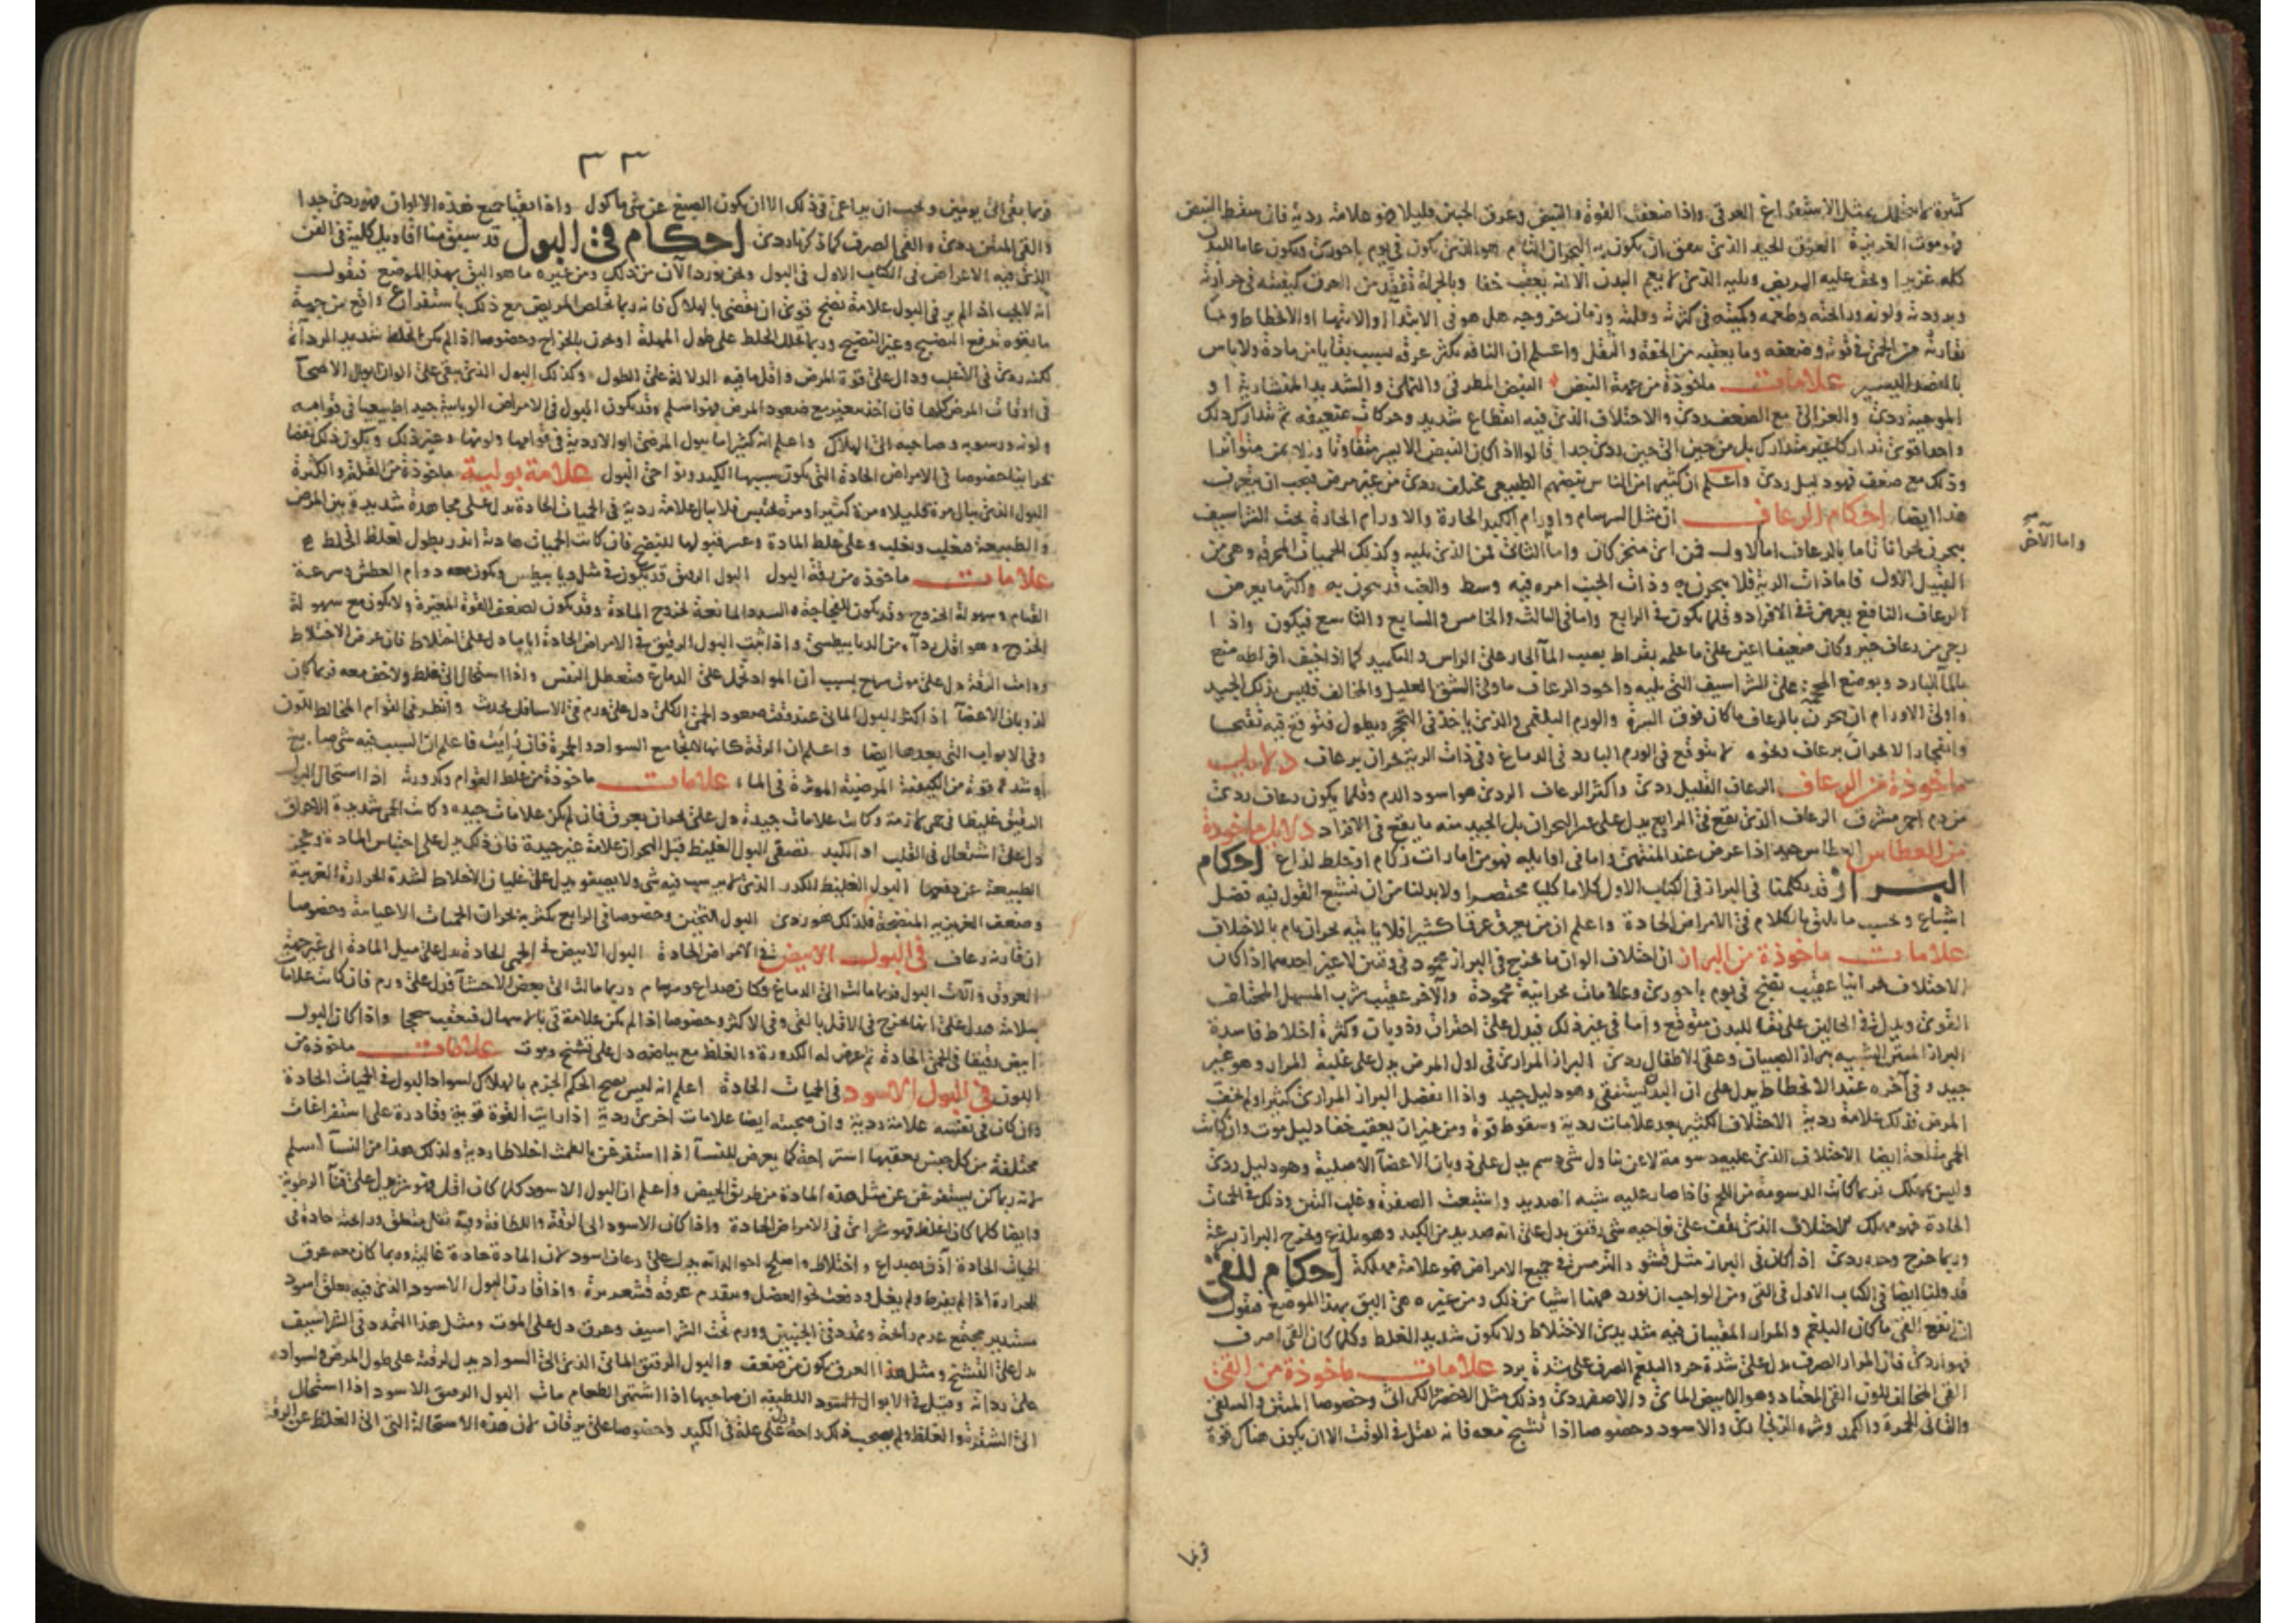 كثيرة مما يتحلل بمثل الاستفراغ العرقي واذا ضعفت القوة والنبض وعرق الجبين قليلا فهو علامة ردية فان سقط النبض
فهو موت الغريزة العرق الجيد الذي يتفق ان يكون به البحران التام هو الذي يكون في يوم باحوري ويكون عاما للبدن
كله غزيرا ويخف عليه المريض ويليه الذي لا يعم البدن الا انه يعقب خفا وبالجملة تفقد من العرق كيفيته في حرارته
وبرودته ولونه ورائحته وطعمه وكميته في كثرته وقلته وزمان خروجه هل هو في الابتدا او الانتها او الانحطاط وما
يقارنه من الحمى في قوته وضعفه وما يعقبه من الخفة والثقل واعلم ان الناقه يكثر عرقه بسبب بقايا من مادة ولا باس
بالفصد اليسير علامات ماخوذة من جهة النبض النبض المطرقي والنملي والشديد المنشارية او
الموجية ردي والغزالي مع الضعف ردي والاختلاف الذي فيه انقطاع شديد وحركات ضعيفة ثم يتدارك ذلك
واحدا قوي تداركا غير متدارك بل من حين الى حين ردي جدا قالوا اذا كان النبض الايسر متفاوتا ولايمن متواترا
وذلك مع ضعف فهو دليل ردي واعلم ان كثيرا من الناس نبضهم الطبيعي مختلف ردي من غير مرض فيجب ان يتعرف
هذا ايضا احكام الرعاف ان مثل السرسام واورام الكبد الحارة والاورام الحادة تحت الشراسيف
يبحرن بحرانا تاما بالرعاف اما الاول فمن اي منخر كان واما الثاني فمن الذي يليه وكذلك الحميات المحرقة وهي من
القبيل الاول فاما ذات الرية فلا يبحرن به وذات الجنب امره فيه وسط والغب قد يبحرن به واكثر ما يعرض
الرعاف النافع يعرض في الافراد وقلما يكون في الرابع واما في الثالث والخامس والسابع والتاسع فيكون واذا
رجي من رعاف خير وكان ضعيفا اعين على ما علمه بقراط بصب الما الحار على الراس والتكميد كما اذا خيف افراطه منع
بالما البارد وبوضع المحجمة على الشراسيف التي يليه واجود الرعاف ما ولي الشق العليل والمخالف فليس بذلك الجيد
واولى الاورام ان يبحرن بالرعاف ما كان فوق السرة والورم البلغمي والذي ياخذ في التحجر ويطول فتوقع فيه تقيحا
وانفجارا لا بحران برعاف ونحوه لا يتوقع في الورم البارد في الدماغ وفي ذات الرية بحران برعاف دلايل
ماخوذة من الرعاف الرعاف القليل ردي واكثر الرعاف الردي هو اسود الدم وقلما يكون رعاف ردي
من دم احمر مشرق الرعاف الذي يقع في الرابع يدل على عسر البحران بل الجيد منه ما يقع في الافراد دلايل ماخوذة
من العطاس العطاس جيد اذا عرض عند المنتهى واما في اوايله فهو من امارات زكام او خلط لذاع احكام
البراز قد تكلمنا في البراز في الكتاب الاول كلاما كليا مختصرا ولا بد لنا من ان نشبع القول فيه فضل
اشباع وبحسب ما يليق بالكلام في الامراض الحادة واعلم ان من يعرق عرقا كثيرا فلا ياتيه بحران تام بالاختلاف
علامات ماخوذة من البراز ان اختلاف الوان ما يخرج في البراز محمود في وقتين لا غير احدهما اذا كان
الاختلاف بحرانيا عقيب نضج في يوم باحوري وعلامات بحرانية محمودة والآخر عقيب شرب المسهل المختلف
القوى ويدل في الحالين على نقا للبدن متوقع واما في غير ذلك فيدل على احتراق وذوبان وكثرة اخلاط فاسدة
البراز المنتن الشبيه ببراز الصبيان وعقي الاطفال ردي البراز المراري في اول المرض يدل على غلبة المرار وهو غير
جيد وفي آخره عند الانحطاط يدل على ان البدن يستنقي وهو دليل جيد واذا انفصل البراز المراري كثيرا ولم يخف
المرض فذلك علامة ردية الاختلاف الكثير بعد علامات ردية وسقوط قوة ومن غير ان يعقب خفا دليل موت وان كانت
الحمى مقلعة ايضا الاختلاف الذي عليه دسومة لا عن تناول شي دسم يدل على ذوبان الاعضا الاصلية وهو دليل ردي
وليس بمهلك فربما كانت الدسومة من اللحم فاذا صار عليه شبه الصديد واشتبعت الصفرة وغلب النتن وذلك في الحميات
الحادة فهو مهلك الاختلاف الذي يقف على نواحيه شي رقيق يدل على انه صديد من الكبد وهو يلذع ويخرج البراز بسرعة
وربما خرج وحده ردي اذا كان في البراز مثل قشور الترمس في جميع الامراض فهو علامة مهلكة احكام للقي
قد قلنا ايضا في الكتاب الاول في القي ومن الواجب ان نورد ههنا اشيا من ذلك ومن غيره هي اليق بهذا الموضع فنقول
ان انفع القي ما كان البلغم والمرار المقيسان فيه شديدي الاختلاط ولا يكون شديد الغلط وكلما كان القي اصرف
فهو اردى فان المرار الصرف يدل على شدة حر والبلغم الصرف على شدة برد علامات ماخوذة من القي
القي المخالف للون القي المعتاد وهو الابيض المائي والاصفر ردي وذلك مثل الاخضر الكراثي وخصوصا المنتن والسلقي
والقاني الحمرة والكمد وشره الزنجاري والاسود وخصوصا اذا تشنج معه فانه يقتل في الوقت الا ان يكون هناك قوة
واما الآخر
وربما
٣٣
فربما بقي الى يومين ويجب ان يراعى في ذلك الا ان يكون الصبغ عن شي ماكول واذا تقيا جميع هذه الالوان فهو ردي جدا
والقي المنتن ردي والقي الصرف كما ذكرنا ردي احكام في البول قد سبق منا اقاويل كلية في الفن
الذي فيه الاعراض في الكتاب الاول في البول ونحن نورد الآن من ذلك ومن غيره ما هو اليق بهذا الموضع فنقول
انه لا يجب اذا لم ير في البول علامة نضج قوي ان يقضى بالهلاك فانه ربما تخلص المريض مع ذلك باستفراغ واقع من جهة
ما بقوة تدفع النضيج وغير النضيج وربما تحلل الخلط على طول المهلة او بحرن بالخراج وخصوصا اذا لم يكن الخلط شديد الرداة
لكنه ردي في الاغلب ودال على قوة المرض واقل ما فيه الدلالة على الطول وكذلك البول الذي يبقى على الوان ابوال الاصحا
في اوقات المرض كلها فان اخذ يتغير مع صعود المرض فهو اسلم وقد يكون البول في الامراض الوبايية جيدا طبيعيا في قوامه
ولونه ورسوبه وصاحبه الى الهلاك واعلم انه كثيرا ما يبول المرضى ابوالا ردية في قوامها ولونها وغير ذلك ويكون ذلك نفضا
بحرانيا خصوصا في الامراض الحادة التي يكون سببها الكبد ونواحي البول علامة بولية ماخوذة من القلة والكثرة
البول الذي يبال مرة قليلا ومرة كثيرا ومرة يحتبس فلا يبال علامة ردية في الحميات الحادة يدل على مجاهدة شديدة بين المرض
والطبيعة فيغلب ويغلب وعلى غلط المادة وعسر قبولها للنضج فان كانت الحميات هادئة انذر بطول لغلظ الخلط
علامات ماخوذة من رقة البول البول الرقيق قد يكون في مثل ديابيطس ويكون معه دوام العطش وسرعة
القيام وسهولة الخروج وقد يكون للفجاجة والسدد المانعة لخروج المادة وقد يكون لضعف القوة المغيرة ولا يكون مع سهولة
الخروج وهو اقل رداة من الديابيطسي واذا ثبت البول الرقيق في الامراض الحادة اياما دل على اختلاط فان عرض الاختلاط
ودامت الرقة دل على موت سريع بسبب ان المواد تحمل على الدماغ فتعطل النفس واذا استحال الى غلظ ولا خف معه فربما كان
لذوبان الاعضا اذا كثر البول المائي عند وقت صعود الحمى الكلي دل على ورم في الاسافل يحدث وانظر في القوام المخالط للون
وفي الابواب التي بعدها ايضا واعلم ان الرقة كانها لا تجامع السواد والحمرة فان رايت فاعلم ان السبب فيه شي صابغ
او شدة قوة من الكيفية المرضية الموثرة في الماء علامات ماخوذة من غلظ القوام وكدورته اذا استحال البول
الرقيق غليظا في حمى لازمة وكانت علامات جيدة دل على بحران بعرق فان لم يكن علامات جيدة وكانت الحمى شديدة الاحراق
دل على اشتعال في القلب او الكبد تصفي البول الغليظ قبل البحران علامة غير جيدة فان ذلك يدل على احتباس المادة وعجز
الطبيعة عن دفعها البول الغليظ الكدر الذي لا يرسب فيه شي ولا يصفو يدل على غليان الاخلاط لشدة الحرارة الغريبة
وضعف الغريزية المنضجة فلذلك هو ردي البول الثخين وخصوصا في الرابع يكثر به بحران الحميات الاعيايية وخصوصا
ان قارنه رعاف في البول الابيض في الامراض الحادة البول الابيض في الحمى الحادة يدل على ميل المادة الى غير جهة
العروق وآلات البول فربما مالت الى الدماغ فكان صداع وسرسام وربما مالت الى بعض الاحشا فدل على ورم فان كانت علامات
سلامة فيدل على انها تخرج في الاقل بالقي وفي الاكثر وخصوصا اذا لم يكن علامة قي باسهال فيعقب سحجا واذا كان البول
ابيض رقيقا في الحمى الحادة ثم عرض له الكدورة والغلظ مع بياضه دل على تشنج وموت علامات ماخوذة من
اللون في البول الاسود في الحميات الحادة اعلم انه ليس يصح الحكم الجزم بالهلاك لسواد البول في الحميات الحادة
وان كان في نفسه علامة ردية وان صحبته ايضا علامات اخرى ردية اذا رايت القوة قوية وقادرة على استفراغات
مختلفة من كل جنس يعقبها استراحة كما يعرض للنسا اذا استفرغن بالطمث اخلاطا ردية ولذلك هذا من النسا اسلم
لانه ربما كن يستفرغن عن مثل هذه المادة من طريق الحيض واعلم ان البول الاسود كلما كان اقل فهو شر يدل على فنا الرطوبة
وايضا كلما كان اغلظ فهو شر اي في الامراض الحادة واذا كان الاسود الى الرقة واللطافة وفيه ثفل متعلق ورائحته حادة في
الحميات الحادة آذن بصداع واختلاط واصلح احواله انه يدل على رعاف اسود لان المادة حادة غالية وربما كان معه عرق
للحرارة اذا لم يفرط ولم يخل ودفعت نحو العضل ويتقدم عرقه قشعريرة واذا قارن البول الاسود الذي فيه تعلق اسود
مستدير مجتمع عدم رائحة وتمدد في الجنبين وورم تحت الشراسيف وعرق دل على الموت ومثل هذا التمدد في الشراسيف
يدل على التشنج ومثل هذا العرق يكون من ضعف والبول الرقيق المائي الذي الى السواد يدل لرقته على طول المرض ولسواده
على رداته وقيل في الابوال السود اللطيفة ان صاحبها اذا اشتهى الطعام مات البول الرقيق الاسود اذا استحال
الى الشقرة والغلظ ولم يصحب ذلك راحة دل على علة في الكبد وخصوصا على يرقان لان هذه الاستحالة التي الى الغلظ عن الرقة